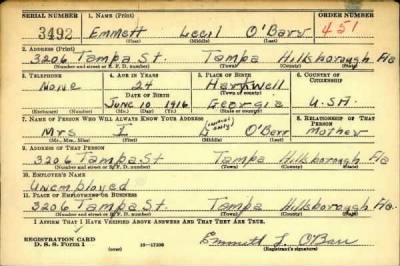 SERIAL NUMBER 1. NAME (Print) ORDER NUMBER
3492 Emmett Cecil O'Barr 451
(First) (Middle) (Last)
2. ADDRESS (Print)
3206 Tampa St. Tampa Hillsborough Fla
(Number and street or R. F. D. number) (Town) (County) (State)
3. TELEPHONE 4. AGE IN YEARS 5. PLACE OF BIRTH 6. COUNTRY OF CITIZENSHIP
None 24 Hartwell
DATE OF BIRTH (Town or county)
June 10 1916 Georgia U.S.A.
(Exchange) (Number) (Mo.) (Day) (Yr.) (State or country)
7. NAME OF PERSON WHO WILL ALWAYS KNOW YOUR ADDRESS 8. RELATIONSHIP OF THAT PERSON
Mrs I (initial only) O'Barr Mother
(Mr., Mrs., Miss) (First) (Middle) (Last)
9. ADDRESS OF THAT PERSON
3206 Tampa St Tampa Hillsborough Fla
(Number and street or R. F. D. number) (Town) (County) (State)
10. EMPLOYER'S NAME
Unemployed
11. PLACE OF EMPLOYMENT OR BUSINESS
3206 Tampa St. Tampa Hillsborough Fla
(Number and street or R. F. D. number) (Town) (County) (State)
I AFFIRM THAT I HAVE VERIFIED ABOVE ANSWERS AND THAT THEY ARE TRUE.
REGISTRATION CARD
D. S. S. Form 1 (over) 16—17105 Emmett O'Barr
(Registrant's signature)